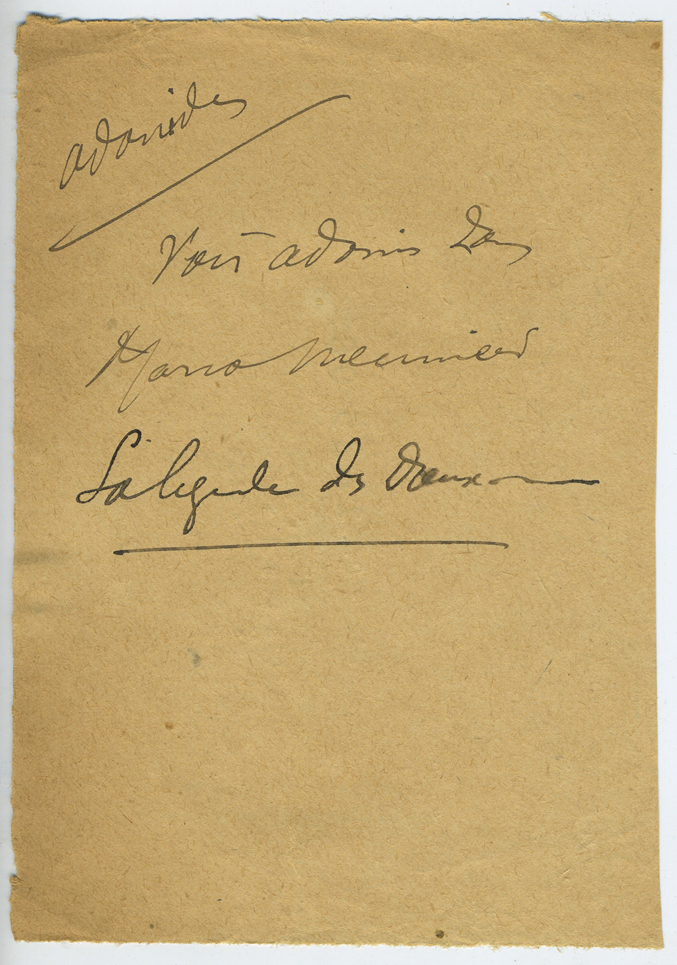 adonides
Voir adonis dans
Mario Meunier
La légende des Dieux